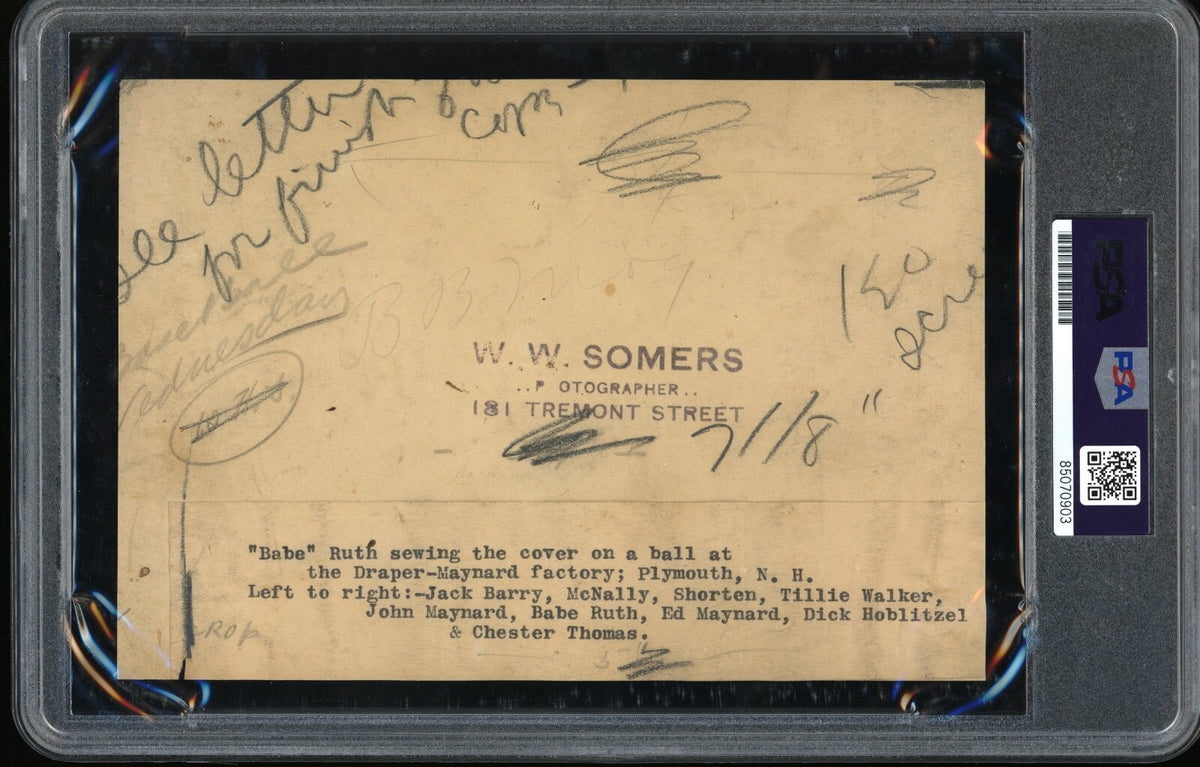 See letter
for finish
copy
Wednesday
W. W. SOMERS
..P OTOGRAPHER..
181 TREMONT STREET
7 1/8 "
"Babe" Ruth sewing the cover on a ball at
the Draper-Maynard factory; Plymouth, N. H.
Left to right:-Jack Barry, McNally, Shorten, Tillie Walker,
John Maynard, Babe Ruth, Ed Maynard, Dick Hoblitzel
& Chester Thomas.
CROP
PSA
PSA
85070903